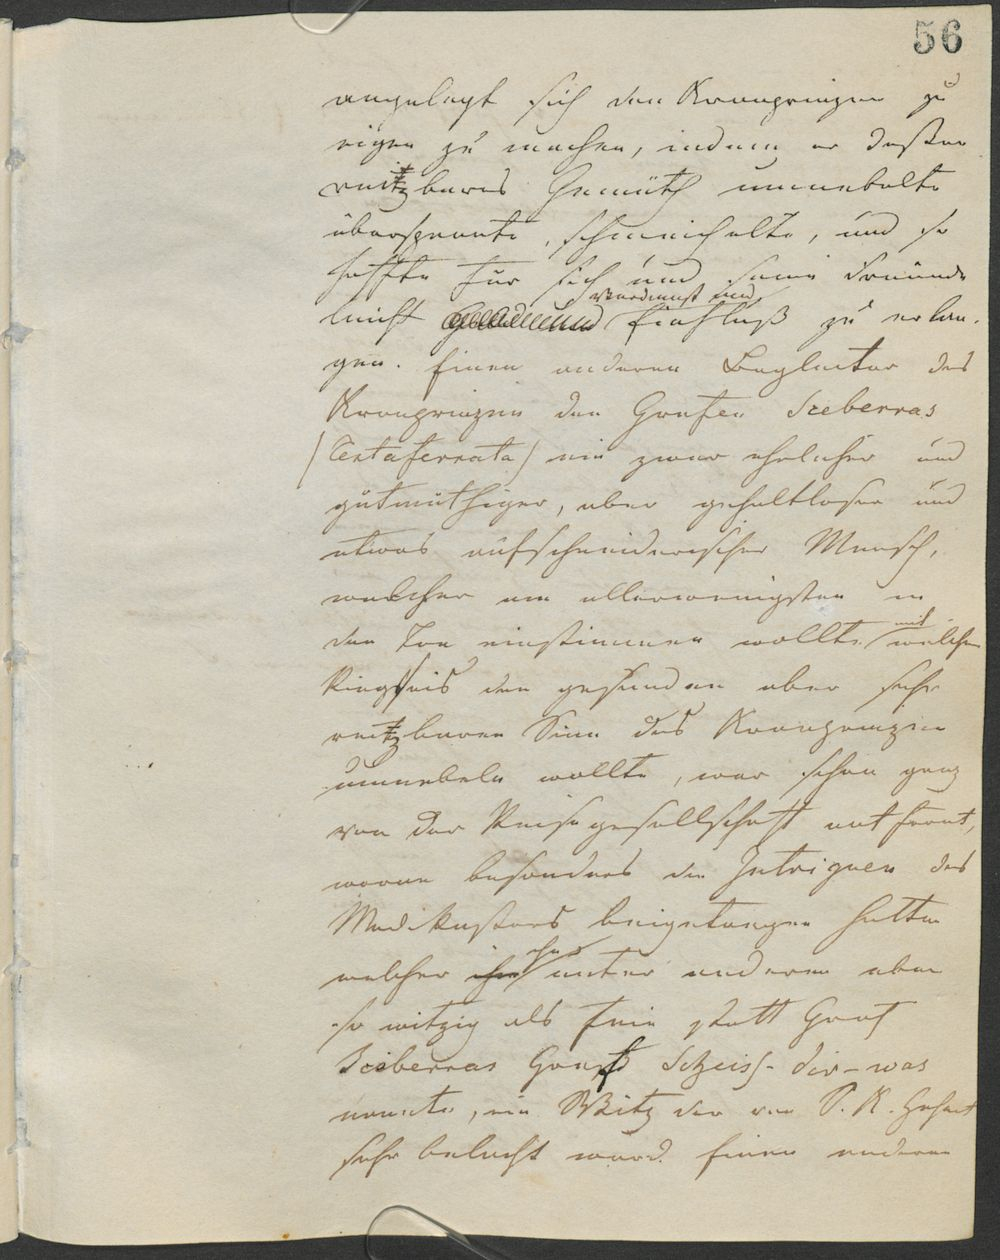 56
angelegt sich den Kronprinzen zu
eigen zu machen, indem er dessen
reitzbares Gemüth umnebelte
überspannte, schmeichelte, und so
hoffte für sich und seine Freunde
leicht Verdienst und Einfluß zu erlan-
gen. Einen anderen Begleiter des
Kronprinzen den Grafen Sceberras
(Testaferrata) ein zwar ehrlicher und
gutmüthiger, aber gehaltloser und
etwas aufschneiderischer Mensch,
welcher am allerwenigsten in
den Ton einstimmen wollte mit welchem
Ringseis den gesunden aber sehr
reitzbaren Sinn des Kronprinzen
umnebeln wollte, war schon ganz
von der Reisegesellschaft entfernt,
woran besonders die Intriguen des
Medikasters beigetragen hatten
welcher ihn unter anderem eben
so witzig als fein statt Graf
Sceberras Graf Scheiss-dir-was
nannte, ein Witz der von S. K. Hoheit
sehr belacht ward. Einen anderen